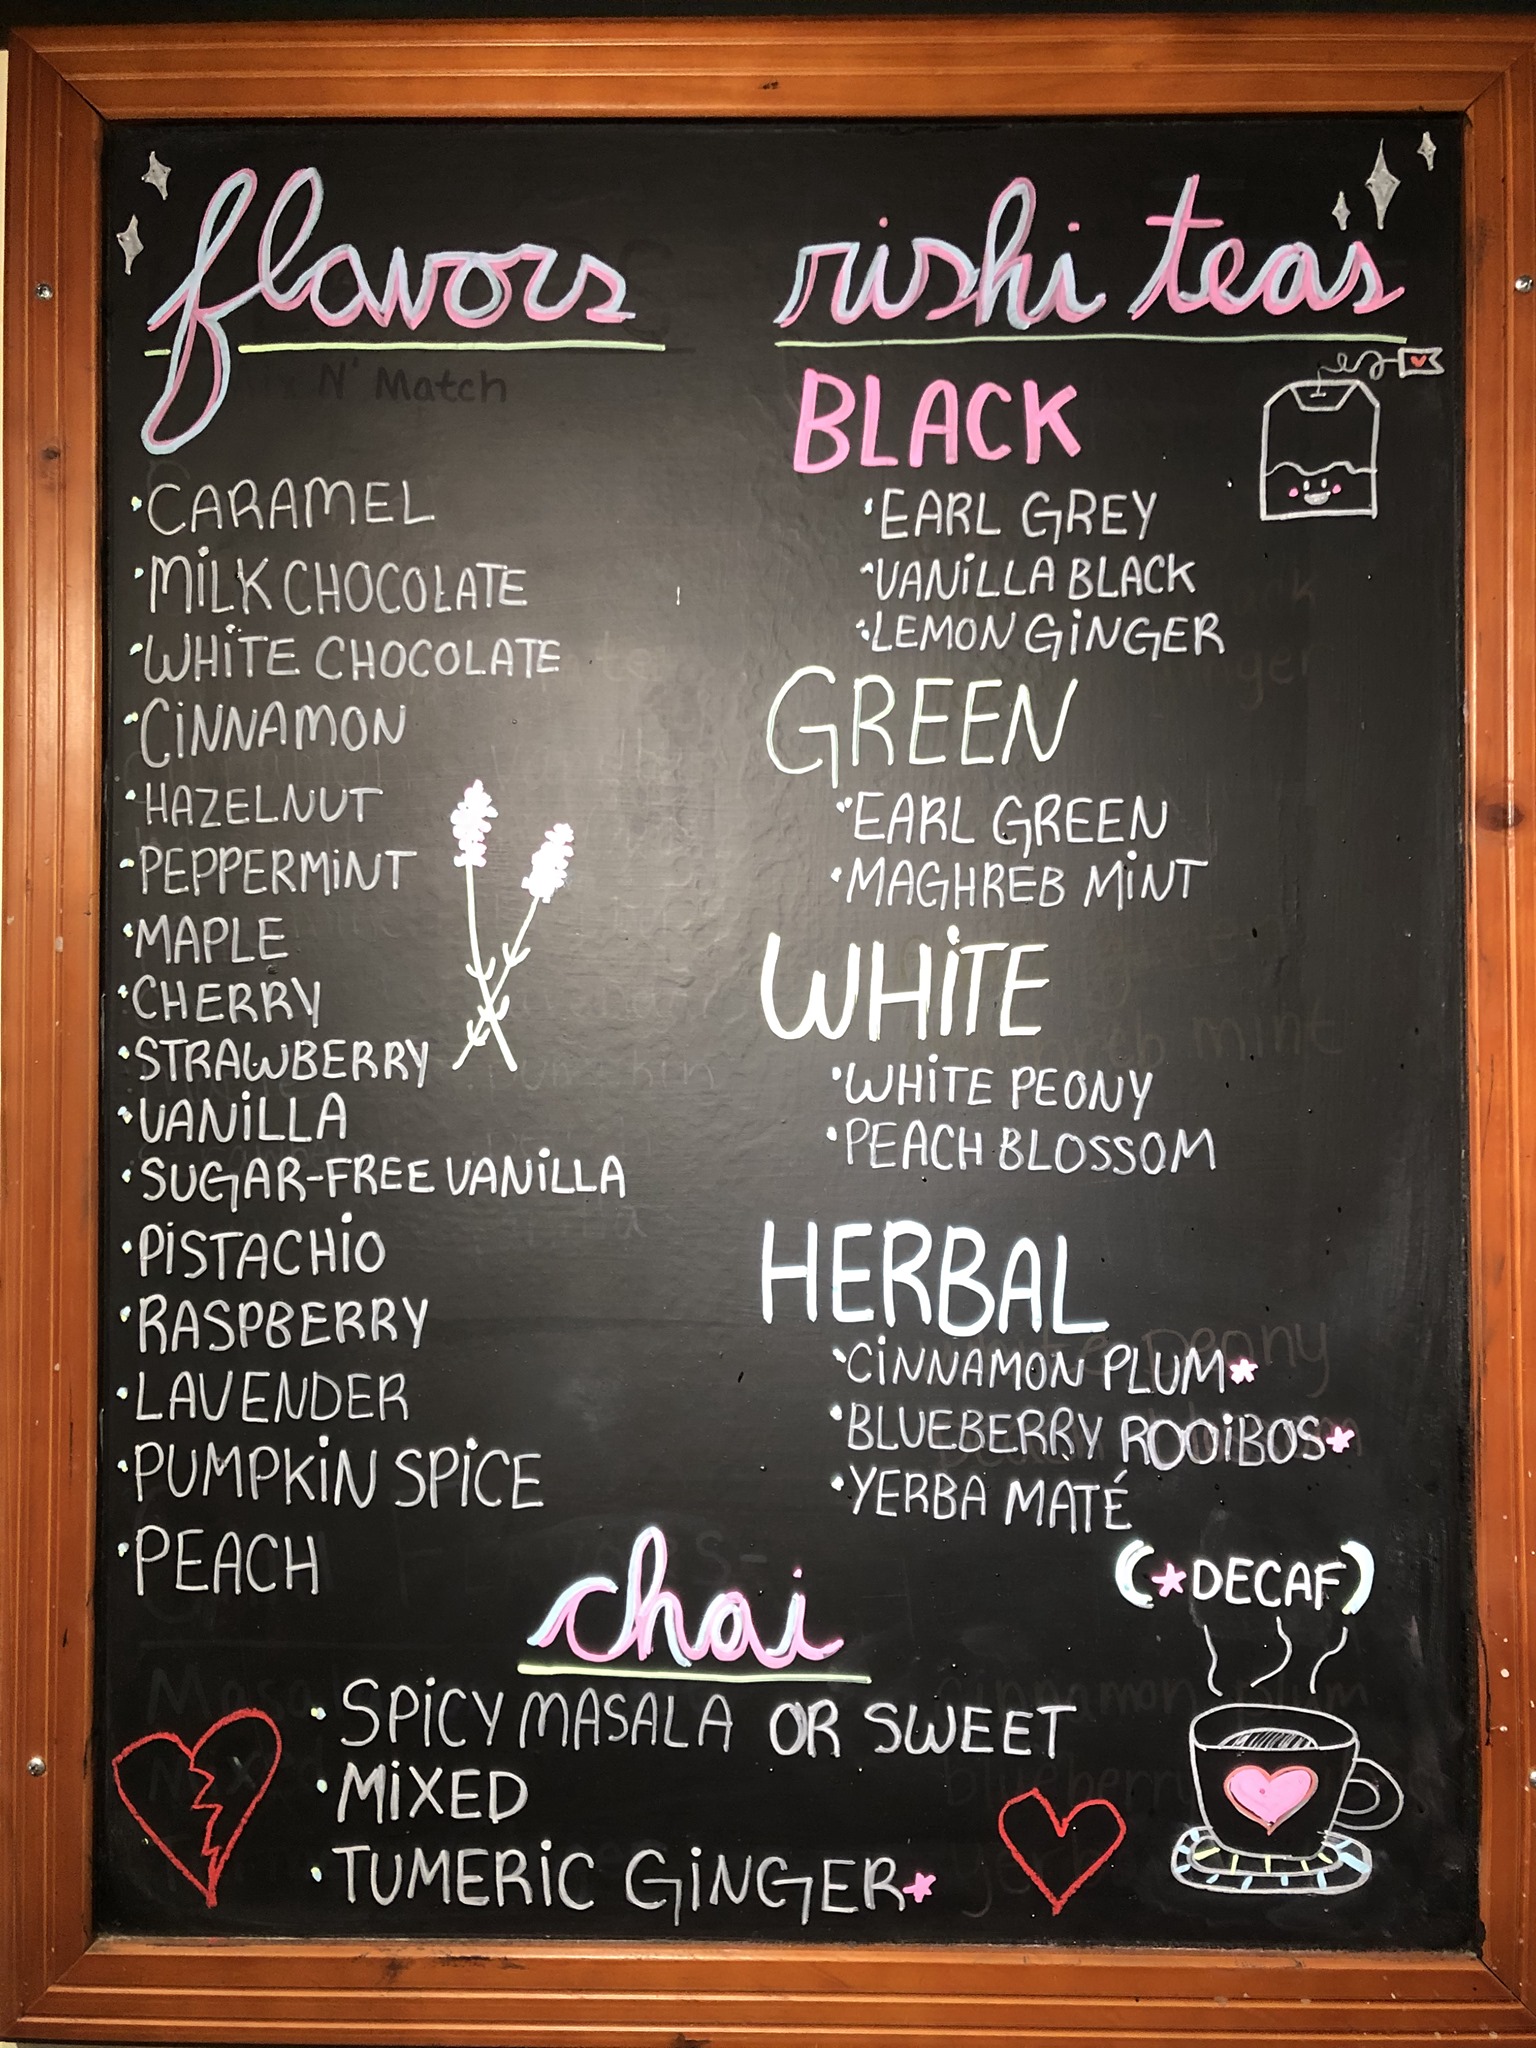 flavors
CARAMEL
MILK CHOCOLATE
WHITE CHOCOLATE
CINNAMON
HAZELNUT
PEPPERMINT
MAPLE
CHERRY
STRAWBERRY
VANILLA
SUGAR-FREE VANILLA
PISTACHIO
RASPBERRY
LAVENDER
PUMPKIN SPICE
PEACH
rishi teas
BLACK
EARL GREY
VANILLA BLACK
LEMON GINGER
GREEN
EARL GREEN
MAGHREB MINT
WHITE
WHITE PEONY
PEACH BLOSSOM
HERBAL
CINNAMON PLUM*
BLUEBERRY ROOIBOS*
YERBA MATÉ
(*DECAF)
chai
SPICY MASALA OR SWEET
MIXED
TUMERIC GINGER*
N' Match